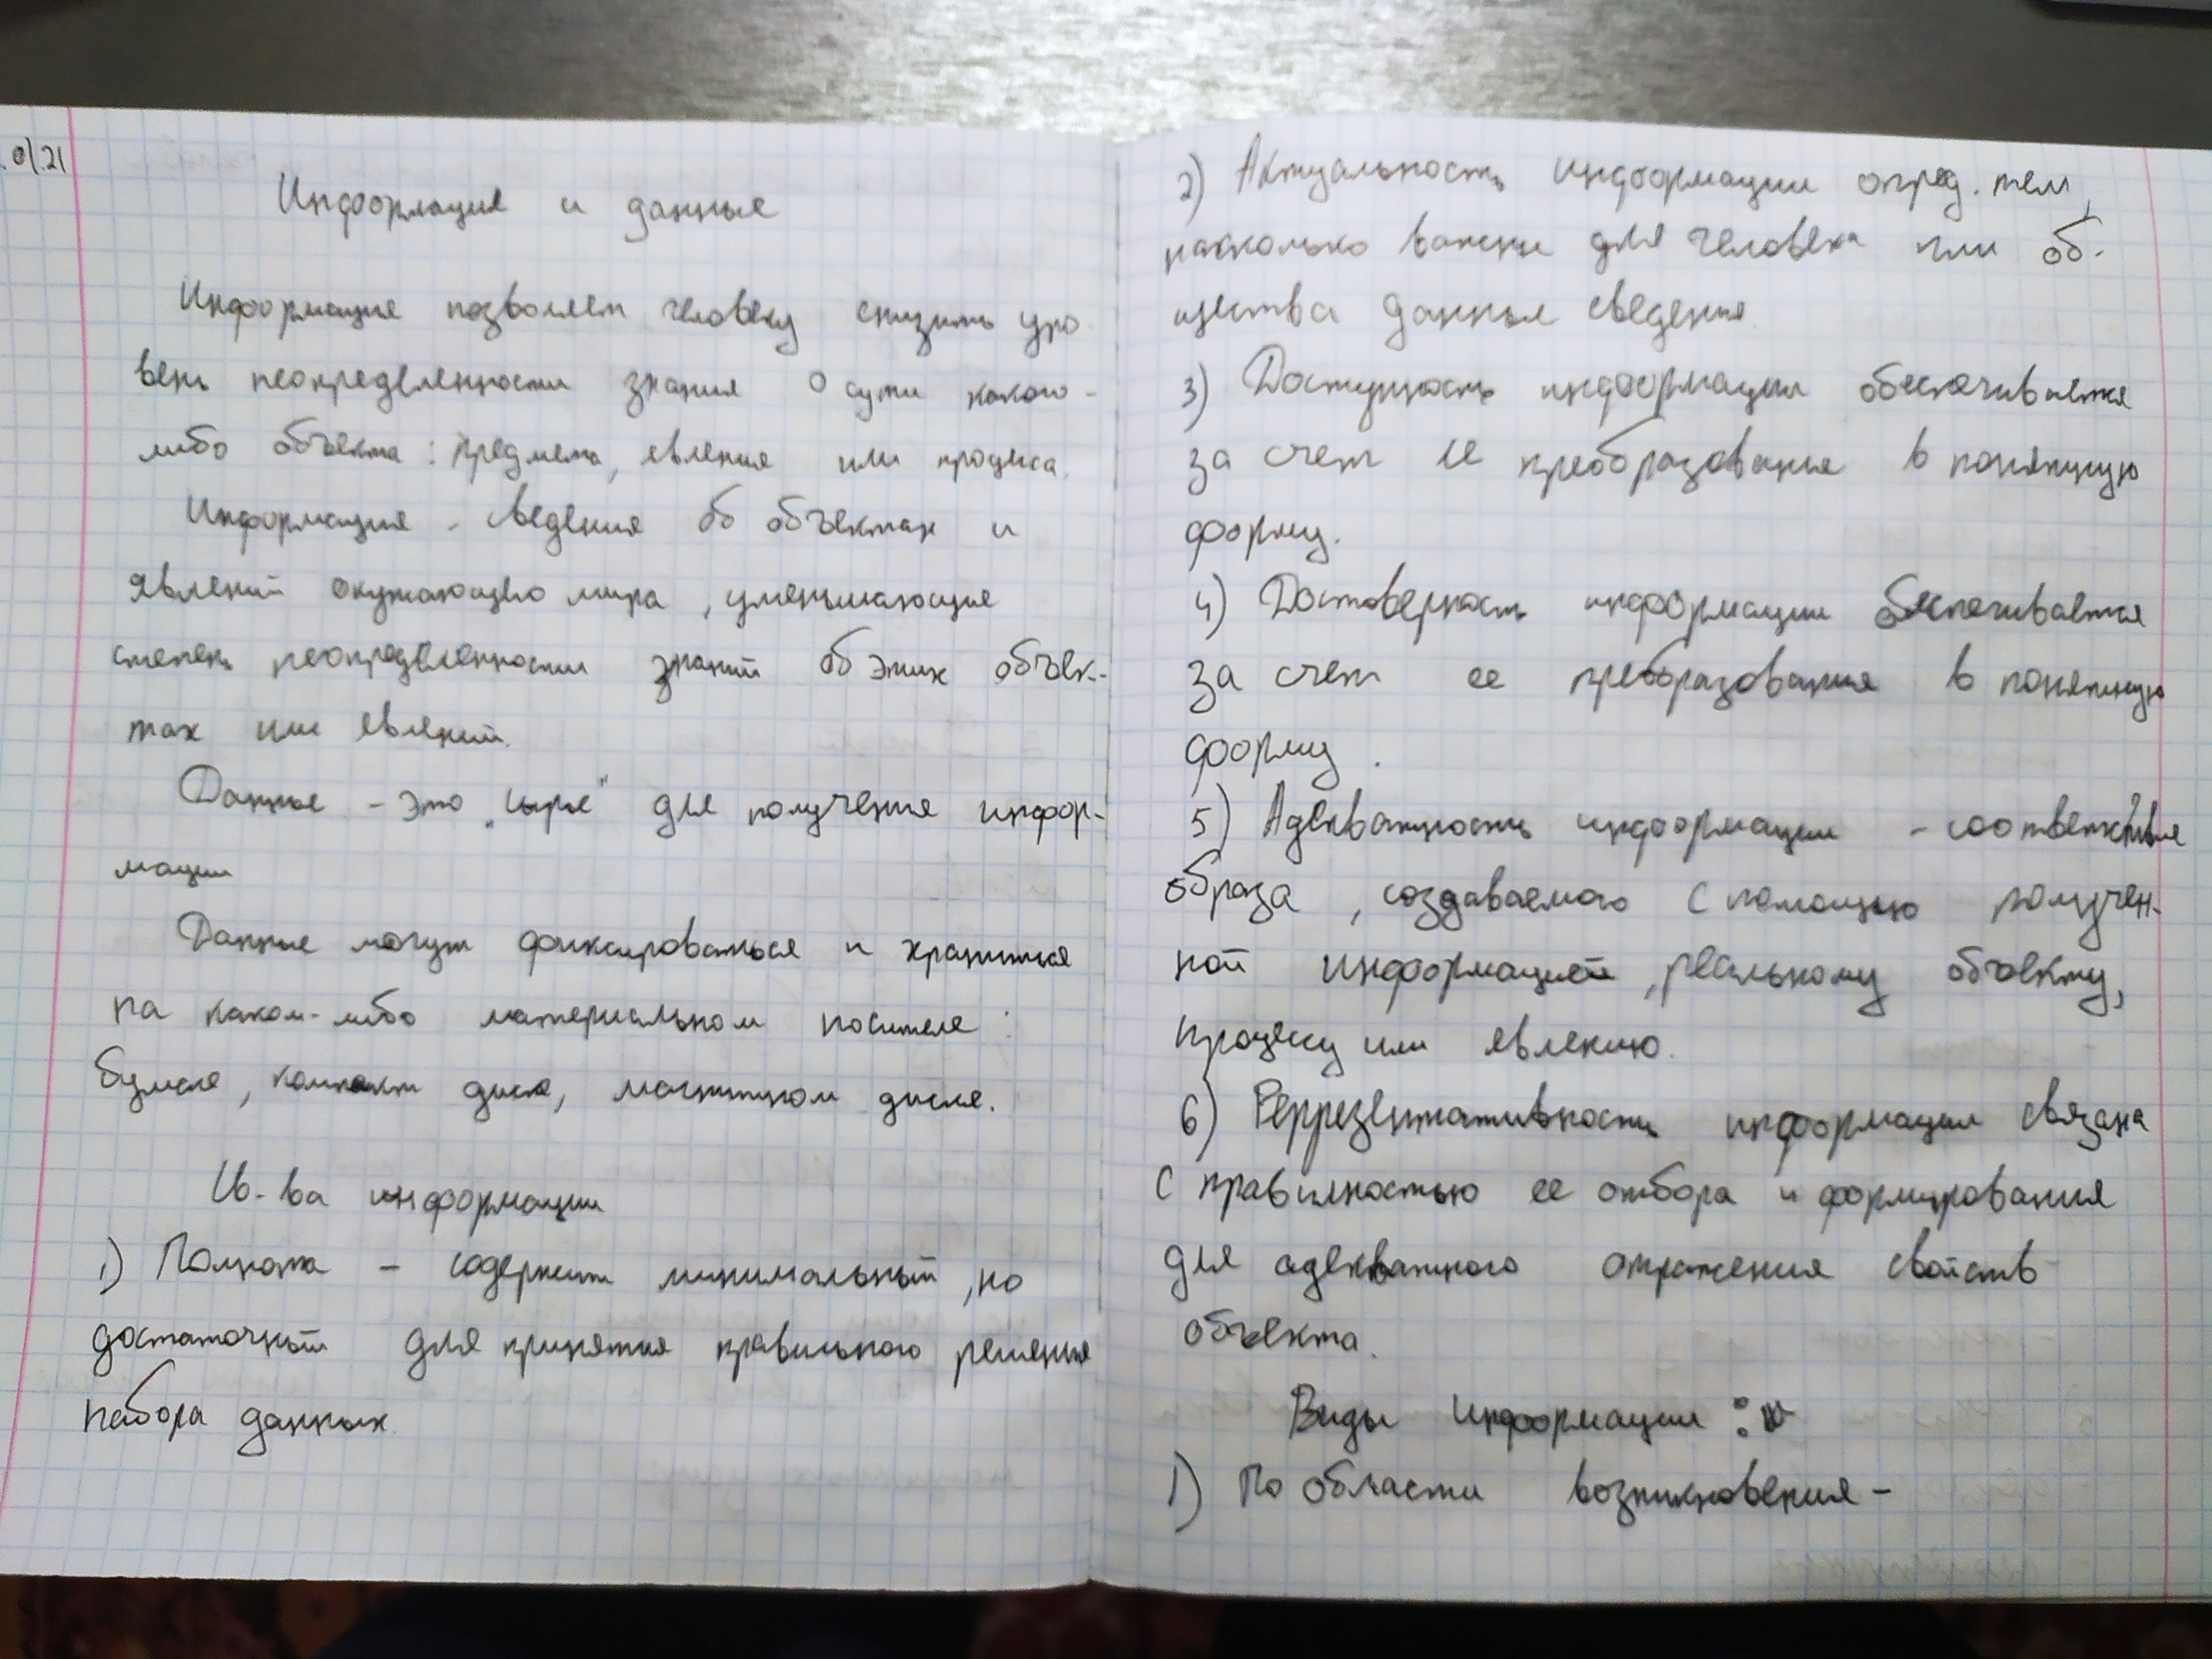 .01.21
Информация и данные
Информация позволяет человеку снизить уро
вень неопределенности знания о сути какого-
либо объекта: предмета, явления или процесса.
Информация - сведения об объектах и
явлений окружающего мира, уменьшающие
степень неопределенности знаний об этих объек-
тах или явлений.
Данные - это "сырье" для получения инфор-
мации
Данные могут фиксироваться и храниться
на каком-либо материальном носителе:
бумаге, компакт диске, магнитном диске.
Св-ва информации
1) Полнота - содержит минимальный, но
достаточный для принятия правильного решения
набора данных.
2) Актуальность информации опред. тем,
насколько важны для человека или об-
щества данные сведения.
3) Доступность информации обеспечивается
за счет ее преобразования в понятную
форму.
4) Достоверность информации обеспечивается
за счет ее преобразования в понятную
форму.
5) Адекватность информации - соответствие
образа, создаваемого с помощью получен-
ной информацией, реальному объекту,
процессу или явлению.
6) Репрезентативность информации связана
с правильностью ее отбора и формирования
для адекватного отражения свойств
объекта.
Виды информации:
1) По области возникновения -